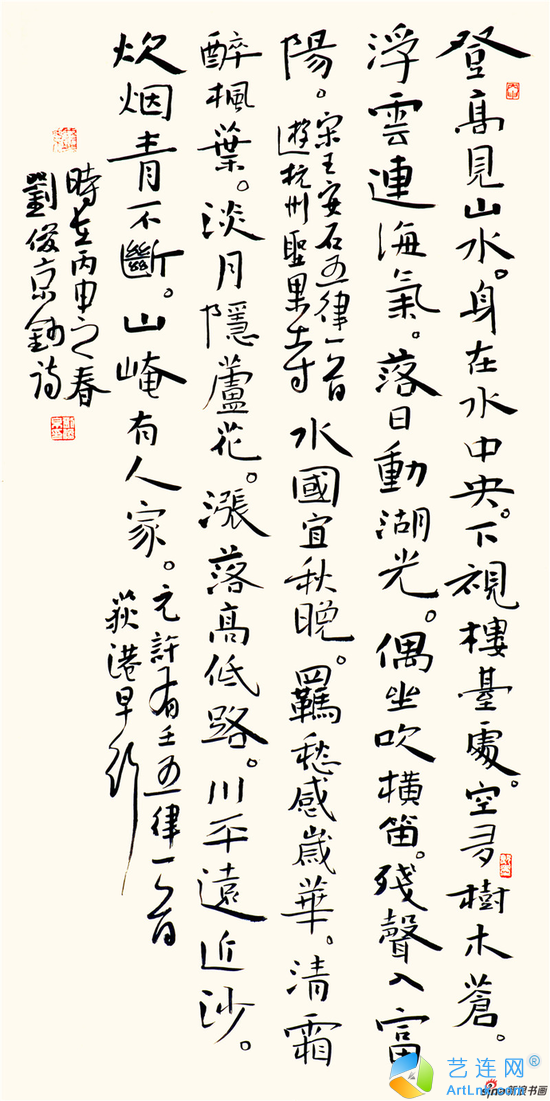 登高見山水。身在水中央。下視樓臺處。空多樹木蒼。
浮雲連海氣。落日動湖光。偶坐吹橫笛。殘聲入富
陽。
宋王安石五律一首
遊杭州聖果寺
水國宜秋晚。羈愁感歲華。清霜
醉楓葉。淡月隱蘆花。漲落高低路。川平遠近沙。
炊烟青不斷。山崦有人家。
元許有壬五律一首
荻港早行
時在丙申之春
劉俊京鈔詩
艺连网
sina新浪书画